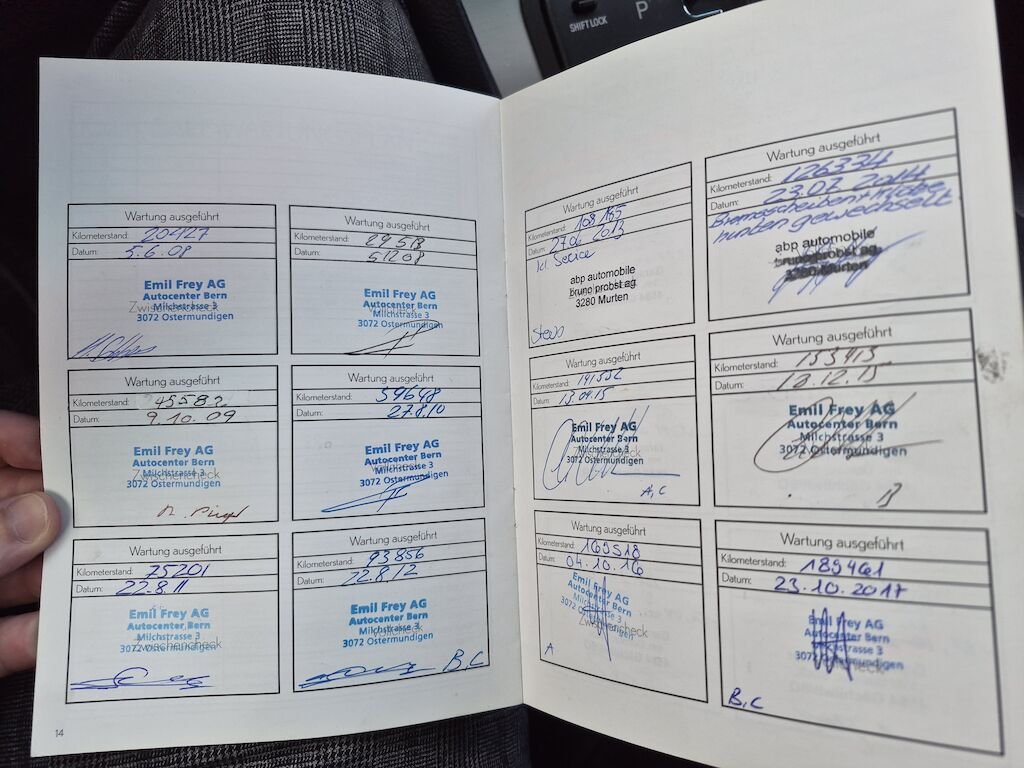 SHIFT LOCK
P
Wartung ausgeführt
Kilometerstand: 20427
Datum: 5.6.08
Emil Frey AG
Autocenter Bern
Zwischencheck
Milchstrasse 3
3072 Ostermundigen
Wartung ausgeführt
Kilometerstand: 29518
Datum: 51208
Emil Frey AG
Autocenter Bern
Milchstrasse 3
3072 Ostermundigen
Wartung ausgeführt
Kilometerstand: 45582
Datum: 9.10.09
Emil Frey AG
Autocenter Bern
Milchstrasse 3
Zwischencheck
3072 Ostermundigen
Wartung ausgeführt
Kilometerstand: 59648
Datum: 27.8.10
Emil Frey AG
Autocenter Bern
Milchstrasse 3
3072 Ostermundigen
Wartung ausgeführt
Kilometerstand: 75201
Datum: 22.8.11
Emil Frey AG
Autocenter Bern
Milchstrasse 3
Zwischencheck
3072 Ostermundigen
Wartung ausgeführt
Kilometerstand: 93856
Datum: 22.8.12
Emil Frey AG
Autocenter Bern
Milchstrasse 3
3072 Ostermundigen
B, C
14
Wartung ausgeführt
Kilometerstand: 108185
Datum: 27.06 2013
kl. Service
abp automobile
bruno probst ag
3280 Murten
Wartung ausgeführt
Kilometerstand: 126334
Datum: 23.07 2014
Bremsscheiben + Klötze
hinten gewechselt
abp automobile
bruno probst ag
3280 Murten
Wartung ausgeführt
Kilometerstand: 141552
Datum: 13.04.15
Emil Frey AG
Autocenter Bern
Milchstrasse 3
3072 Ostermundigen
A, C
Wartung ausgeführt
Kilometerstand: 153415
Datum: 12.15
Emil Frey AG
Autocenter Bern
Milchstrasse 3
3072 Ostermundigen
B
Wartung ausgeführt
Kilometerstand: 169518
Datum: 04.10.16
Emil Frey AG
Autocenter Bern
Milchstrasse 3
3072 Ostermundigen
Zwischencheck
A
Wartung ausgeführt
Kilometerstand: 189461
Datum: 23.10.2017
Emil Frey AG
Autocenter Bern
Milchstrasse 3
3072 Ostermundigen
Zwischencheck
B, C